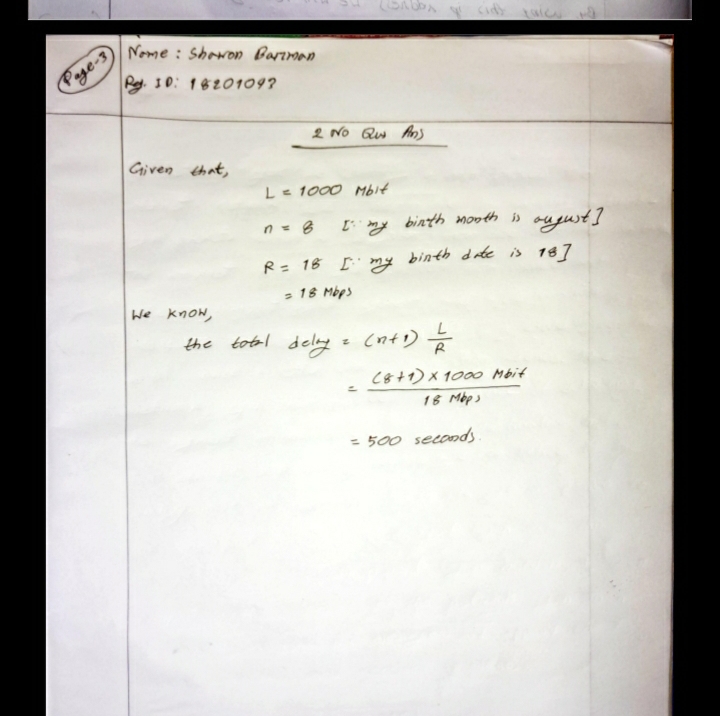 Page-3
Name : Shawon Barman
Reg. ID: 18201093
2 No Qus Ans
Given that,
L = 1000 Mbit
n = 8 [∵ my birth month is august]
R = 18 [∵ my birth date is 18]
= 18 Mbps
We know,
the total delay = (n+1) L/R
= (8+1) × 1000 Mbit / 18 Mbps
= 500 seconds.